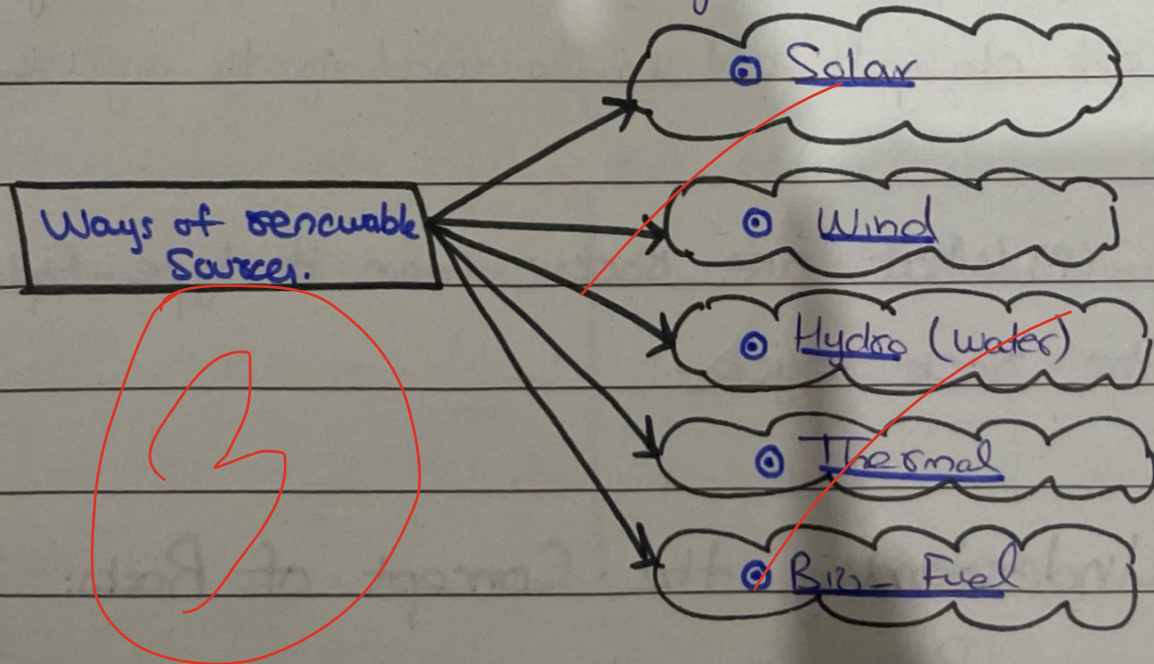 Ways of renewable
Sources.
Solar
Wind
Hydro (water)
Thermal
Bio-Fuel
3